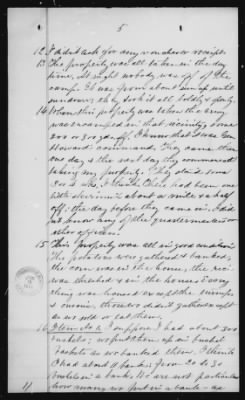 5
12. I didn't ask for any vouchers or receipts
13. This property was all taken in the day
time, at night nobody was off of the
camp. It was from about sun up until
sundown, they took it all boldly & openly.
14. When this property was taken the army
was encamped in that vicinity, some
200 or 300 yds off. I know that it was Gen
Howard's command. They came there
one day & the next day they commenced
taking my property. They staid some
2 or 3 wks, I think. There had been a
little skirmish about a mile & a half
off, the day before they came in. I did
not know any of the quartermasters or
other officers.
15 This property was all in good condition
The potatoes were gathered & banked,
the corn was in the house, the rice
was threshed & in the house & every
thing was housed except the
turnips
&
we sold or eat them.
16. Item No 1. I suppose I had about 200
bushels; we put them up in bushel
baskets as we banked them. I think
I had about 9 banks, from 20 to 30
bushels in a bank. We are not particular
how many we put in a bank - as
11